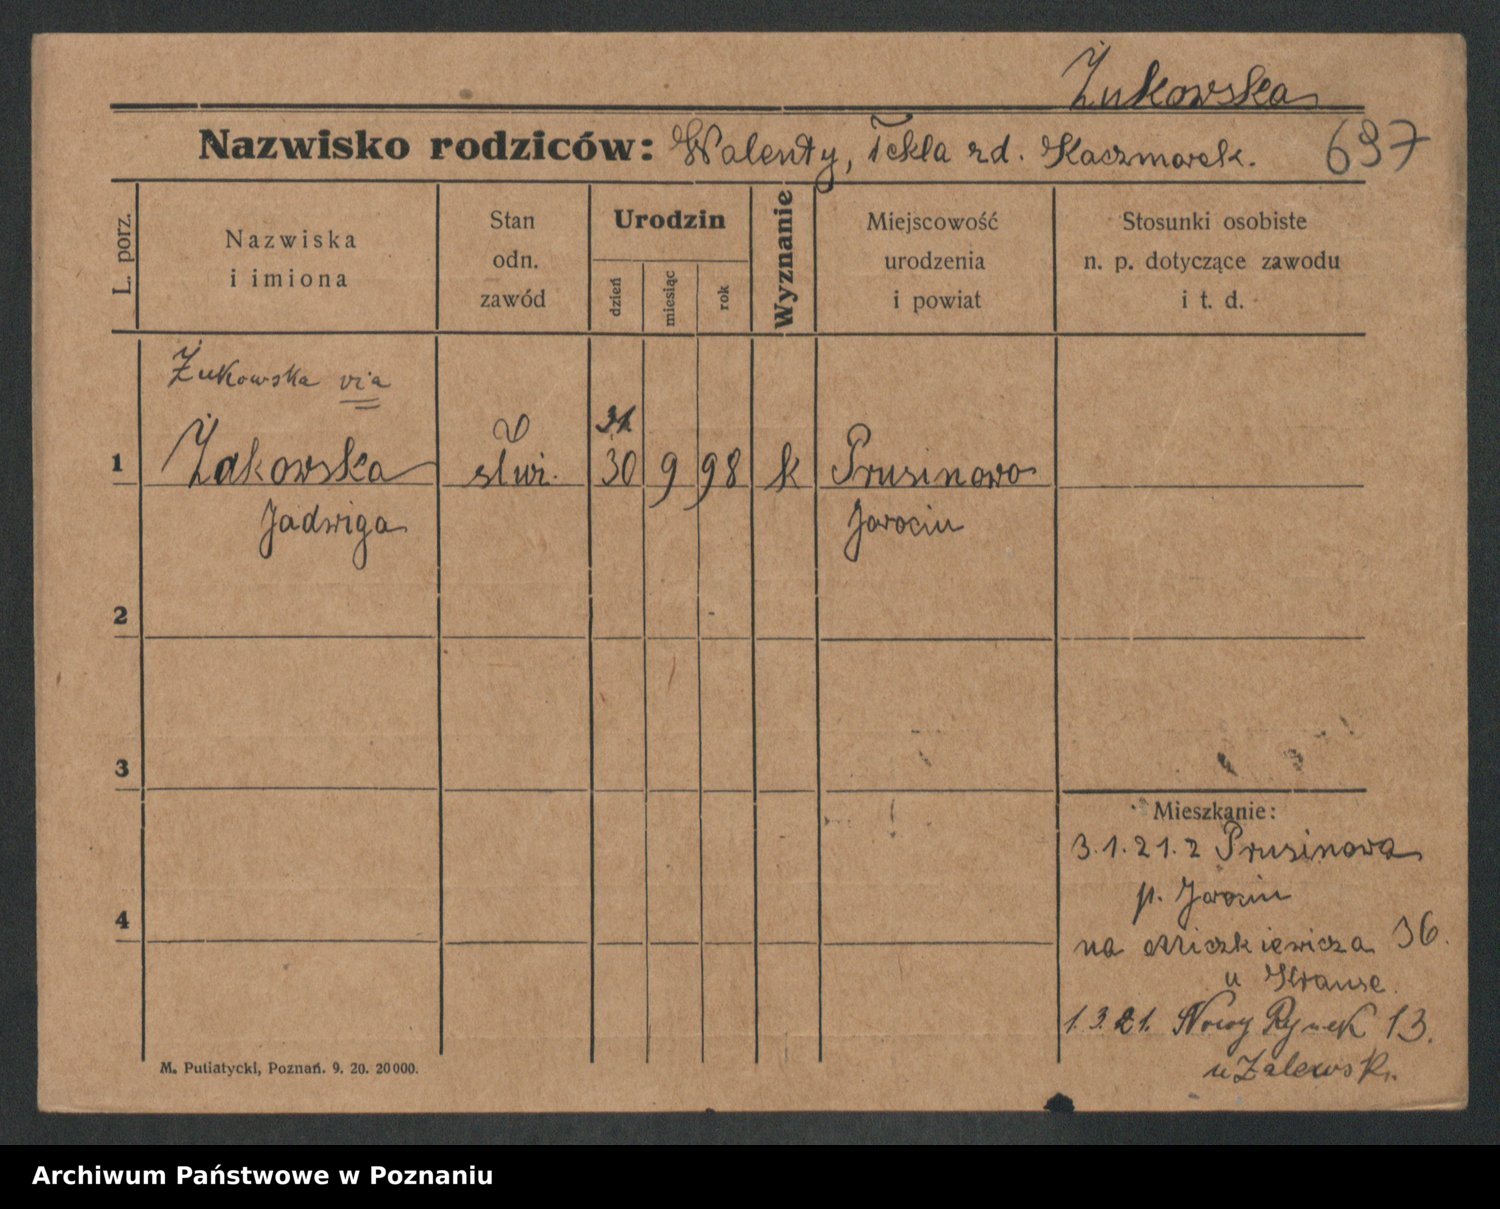 Żukowska
Nazwisko rodziców: Walenty, Tekla rd. Kaczmarek.
697
L. porz.
Nazwiska
i imiona
Stan
odn.
zawód
Urodzin
dzień
miesiąc
rok
Wyznanie
Miejscowość
urodzenia
i powiat
Stosunki osobiste
n. p. dotyczące zawodu
i t. d.
Żukowska via
31
1 Żakowska służ. 30 9 98 k Prusinowo
Jadwiga Jarocin
2
3
4
Mieszkanie:
3.1.21.z Prusinowa
p. Jarocin
na Miczkiewicza 36.
u Krause.
1.3.21. Nowy Rynek 13.
u Zalewsk.
M. Putiatycki, Poznań. 9. 20. 20000.
Archiwum Państwowe w Poznaniu